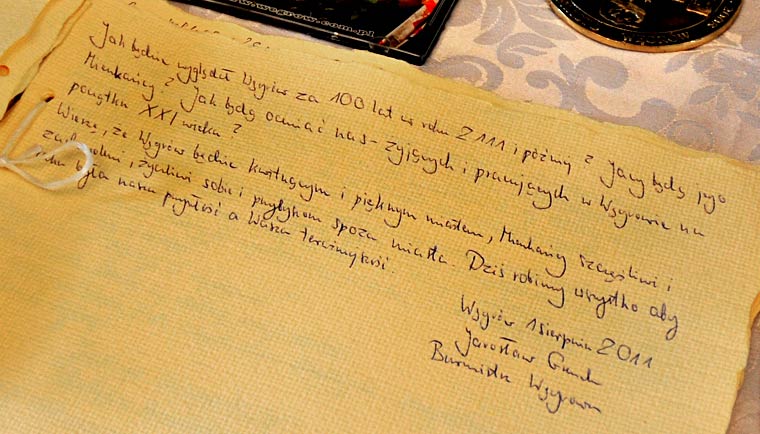 www.wegrow.com.pl
Jak będzie wyglądał Węgrów za 100 lat w roku 2111 i później? Jacy będą jego
Mieszkańcy? Jak będą oceniać nas - żyjących i pracujących w Węgrowie na
początku XXI wieku?
Wierzę, że Węgrów będzie kwitnącym i pięknym miastem, Mieszkańcy szczęśliwi i
zadowoleni, życzliwi sobie i przybyszom spoza miasta. Dziś robimy wszystko aby
była nasza przyszłość a Wasza teraźniejszość.
Węgrów 1 sierpnia 2011
Jarosław
Burmistrz Węgrowa